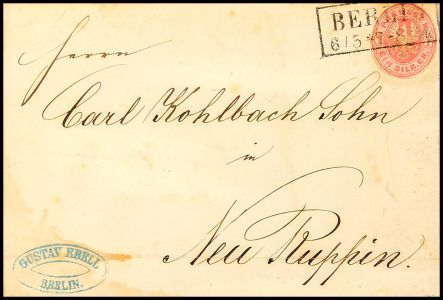 BERLIN
6/5 * 7-8
EIN SILB. GR.
Herrn
Carl Kohlbach Sohn
in
Neu Ruppin.
GUSTAV EBELL
BERLIN.